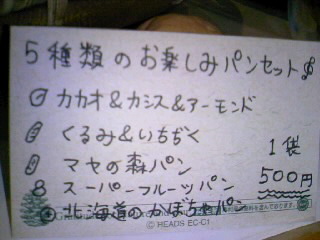 5種類のお楽しみパンセット
カカオ&カシス&アーモンド
くるみ&いちぢく
マヤの森パン
1袋
スーパーフルーツパン
500円
北海道のかぼちゃパン
© HEADS EC-C1